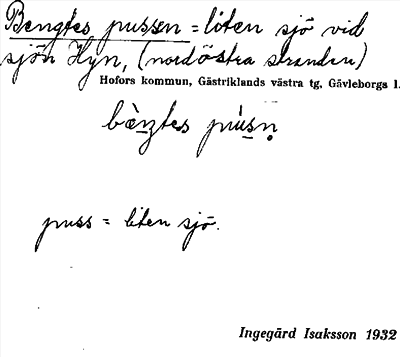 Bengtes pussen = liten sjö vid
sjön Hyn, (nordöstra stranden)
Hofors kommun, Gästriklands västra tg, Gävleborgs l.
bæ̀ŋtes pùsn̥
puss = liten sjö.
Ingegärd Isaksson 1932